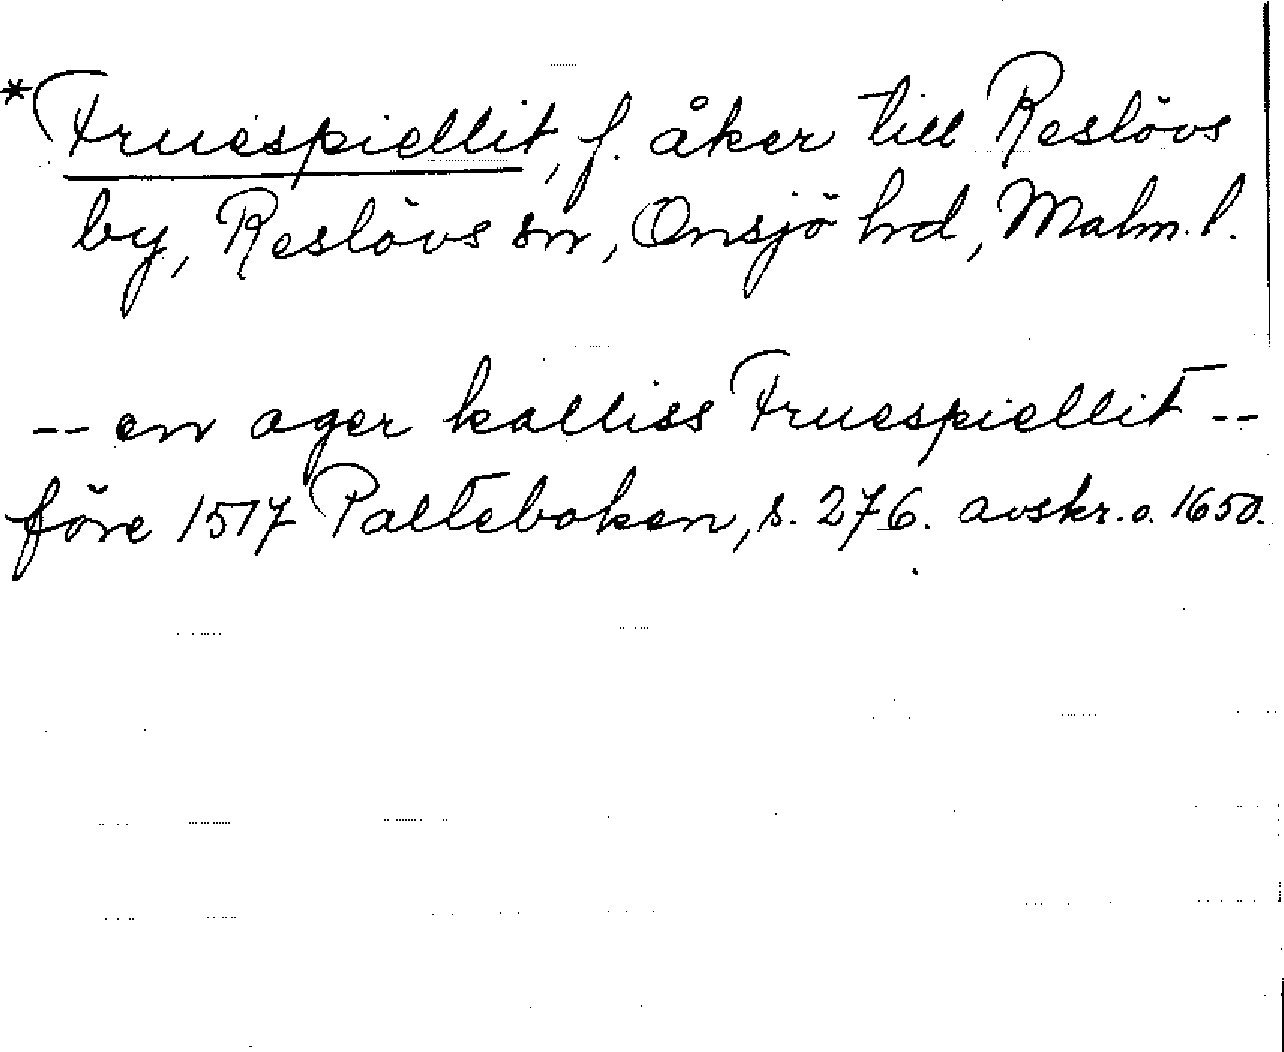 *Fruespiellit, f. åker till Reslövs
by, Reslövs sn, Onsjö hd, Malm. l.
-- en ager kalliss Fruespiellit --
före 1517 Palteboken, s. 276. avskr. o. 1650.